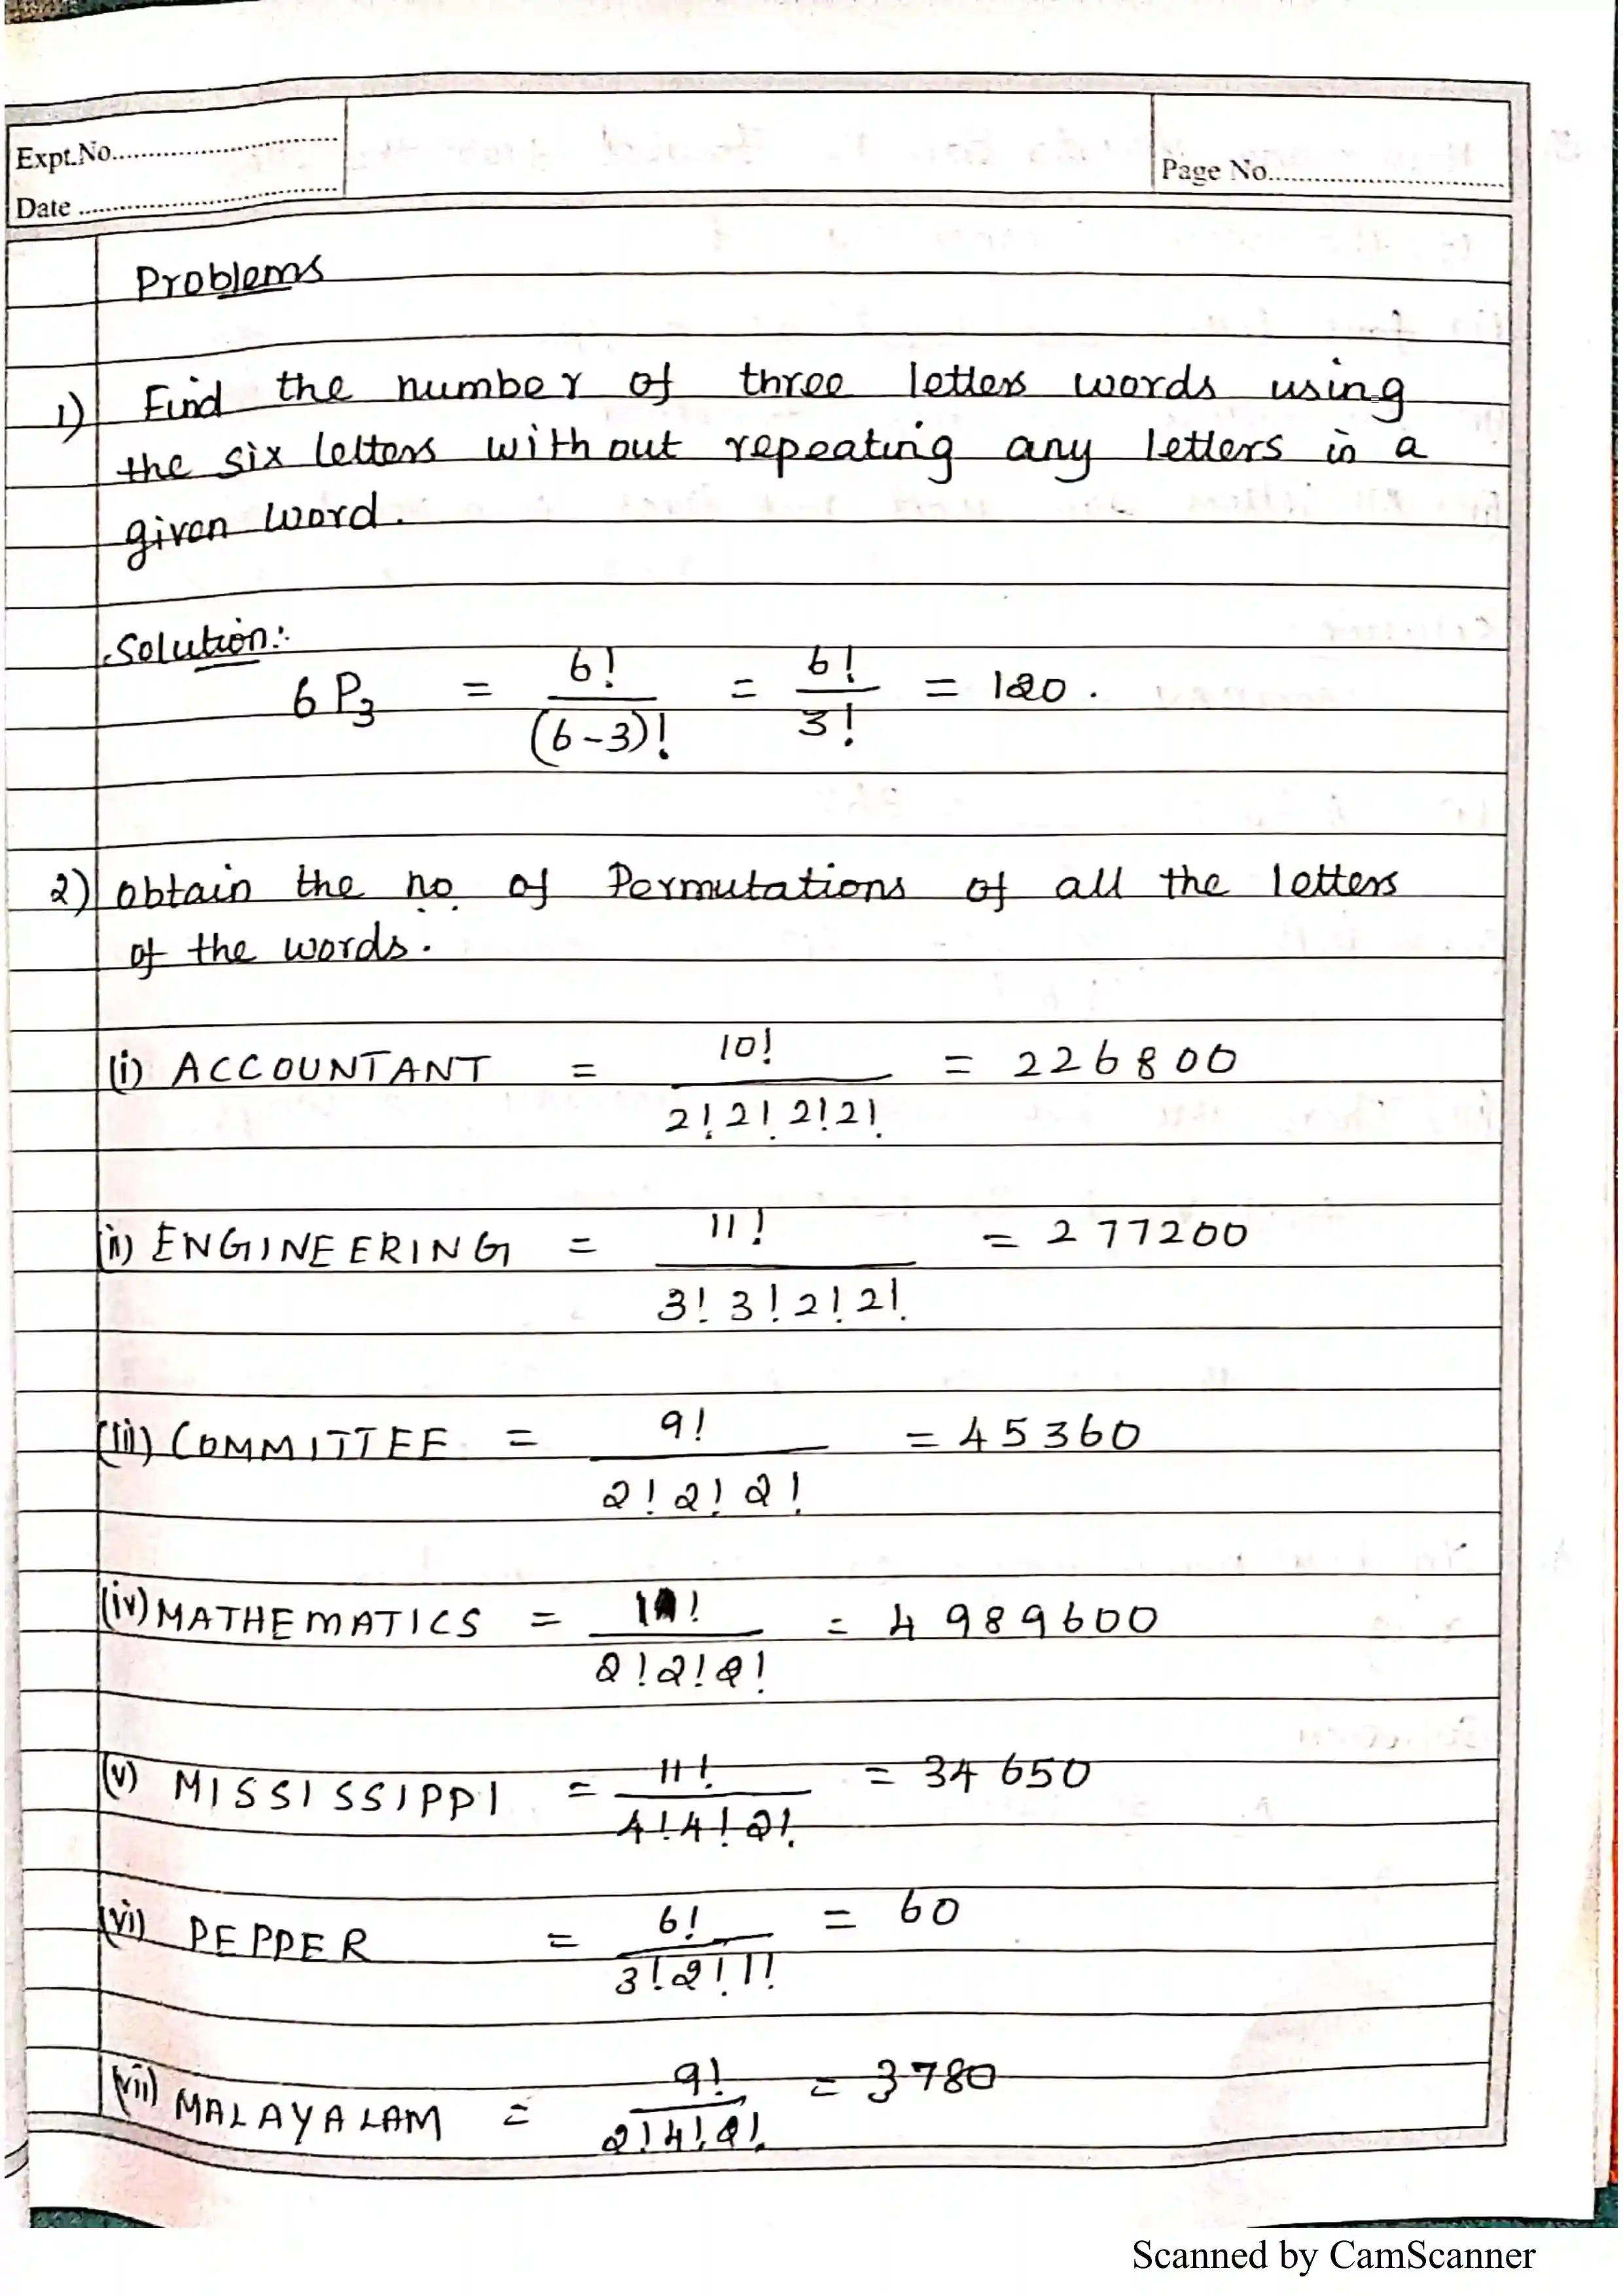 Expt.No.
Date
Page No.
Problems
1) Find the number of three letters words using
the six letters without repeating any letters in a
given word.
Solution:
6P₃ = 6!/(6-3)! = 6!/3! = 120.
2) Obtain the no. of Permutations of all the letters
of the words.
(i) ACCOUNTANT = 10!/2!2!2!2! = 226800
(ii) ENGINEERING = 11!/3!3!2!2! = 277200
(iii) COMMITTEE = 9!/2!2!2! = 45360
(iv) MATHEMATICS = 11!/2!2!2! = 4989600
(v) MISSISSIPPI = 11!/4!4!2! = 34650
(vi) PEPPER = 6!/3!2!1! = 60
(vii) MALAYALAM = 9!/2!4!2! = 3780
Scanned by CamScanner